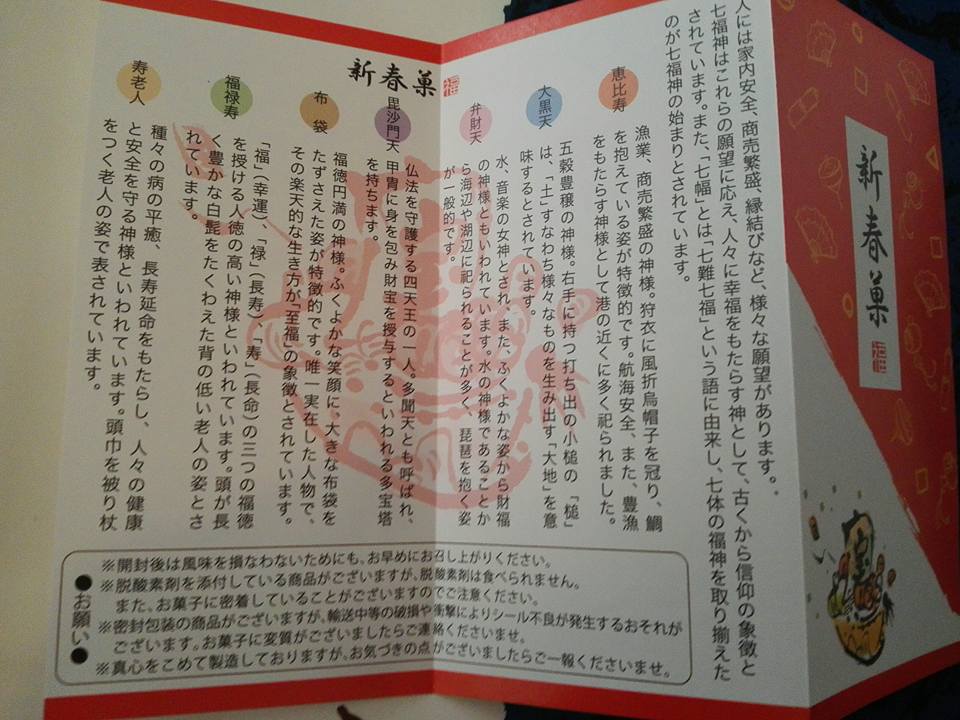 新春菓
福
人には家内安全、商売繁盛、縁結びなど、様々な願望があります。
七福神はこれらの願望に応え、人々に幸福をもたらす神として、古くから信仰の象徴と
されています。また、「七福」とは「七難七福」という語に由来し、七体の福神を取り揃えた
のが七福神の始まりとされています。
恵比寿
漁業、商売繁盛の神様。狩衣に風折烏帽子を冠り、鯛
を抱えている姿が特徴的です。航海安全、また、豊漁
をもたらす神様として港の近くに多く祀られました。
大黒天
五穀豊穣の神様。右手に持つ打ち出の小槌の「槌」
は、「土」すなわち様々なものを生み出す「大地」を意
味するとされています。
弁財天
水、音楽の女神とされ、また、ふくよかな姿から財福
の神様ともいわれています。水の神様であることか
ら海辺や湖辺に祀られることが多く、琵琶を抱く姿
が一般的です。
新春菓
福
毘沙門天
仏法を守護する四天王の一人。多聞天とも呼ばれ、
甲冑に身を包み財宝を授与するといわれる多宝塔
を持ちます。
布袋
福徳円満の神様。ふくよかな笑顔に、大きな布袋を
たずさえた姿が特徴的です。唯一実在した人物で、
その楽天的な生き方が「至福」の象徴とされています。
福禄寿
「福」(幸運)、「禄」(長寿)、「寿」(長命)の三つの福徳
を授ける人徳の高い神様といわれています。頭が長
く豊かな白髭をたくわえた背の低い老人の姿とさ
れています。
寿老人
種々の病の平癒、長寿延命をもたらし、人々の健康
と安全を守る神様といわれています。頭巾を被り杖
をつく老人の姿で表されています。
●お願い●
※開封後は風味を損なわないためにも、お早めにお召し上がりください。
※脱酸素剤を添付している商品がございますが、脱酸素剤は食べられません。
また、お菓子に密着していることがございますのでご注意ください。
※密封包装の商品がございますが、輸送中等の破損や衝撃によりシール不良が発生するおそれが
ございます。お菓子に変質がございましたらご連絡くださいませ。
※真心をこめて製造しておりますが、お気づきの点がございましたらご一報くださいませ。